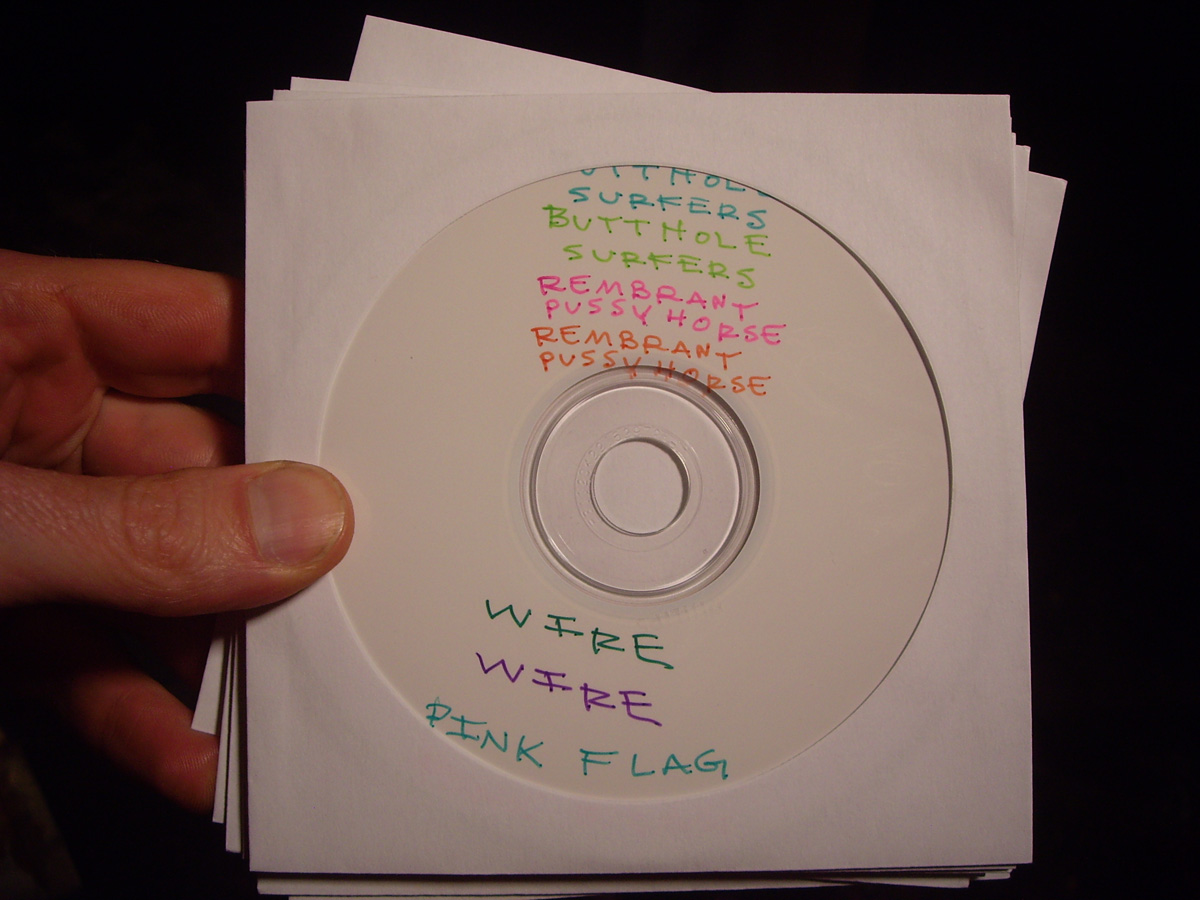 BUTTHOLE
SURFERS
BUTTHOLE
SURFERS
REMBRANT
PUSSY HORSE
REMBRANT
PUSSY HORSE
WIRE
WIRE
PINK FLAG